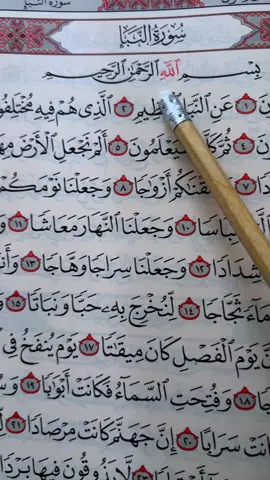 سورة النبإ
سُورَةُ النَّبَإِ
بِسْمِ اللَّهِ الرَّحْمَٰنِ الرَّحِيمِ
١ عَنِ النَّبَإِ الْعَظِيمِ ٢ الَّذِي هُمْ فِيهِ مُخْتَلِفُو
٤ ثُمَّ كَلَّا سَيَعْلَمُونَ ٥ أَلَمْ نَجْعَلِ الْأَرْضَ مِهَ
دًا ٧ وَخَلَقْنَاكُمْ أَزْوَاجًا ٨ وَجَعَلْنَا نَوْمَكُمْ
لِبَاسًا ١٠ وَجَعَلْنَا النَّهَارَ مَعَاشًا ١١
شِدَادًا ١٢ وَجَعَلْنَا سِرَاجًا وَهَّاجًا ١٣ وَأَن
مَاءً ثَجَّاجًا ١٤ لِّنُخْرِجَ بِهِۦ حَبًّا وَنَبَاتًا ١٥
نَّ يَوْمَ الْفَصْلِ كَانَ مِيقَٰتًا ١٧ يَوْمَ يُنفَخُ فِي
١٨ وَفُتِحَتِ السَّمَاءُ فَكَانَتْ أَبْوَٰبًا ١٩ وَسُ
انَتْ سَرَابًا ٢٠ إِنَّ جَهَنَّمَ كَانَتْ مِرْصَادًا ٢١
لَّا يَذُوقُونَ فِيهَا بَرْدًا